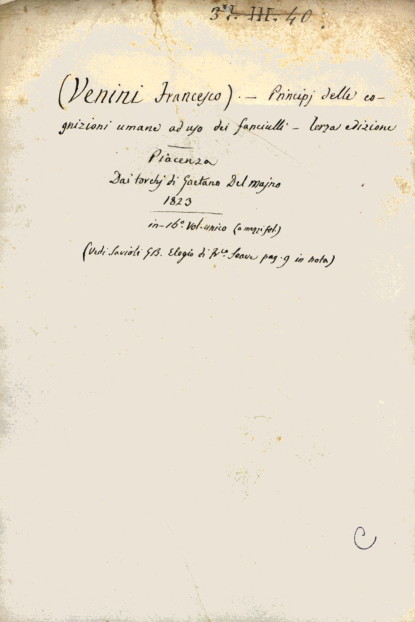 3ª I. III. 40
(Venini Francesco). — Principj delle co-
gnizioni umane ad uso dei fanciulli - terza edizione
Piacenza
Dai torchj di Gaetano Del Majno
1823
in-16º Vol. unico (a mezzi fol)
(Vedi Savioli GB. Elogio di Fr.co Soave pag. 9 in nota)
C